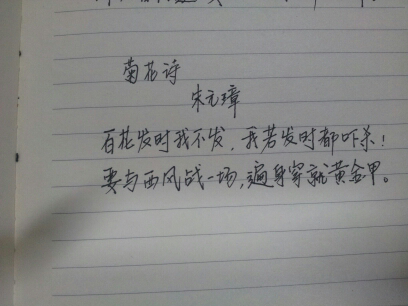 菊花诗
朱元璋
百花发时我不发，我若发时都吓杀！
要与西风战一场，遍身穿就黄金甲。